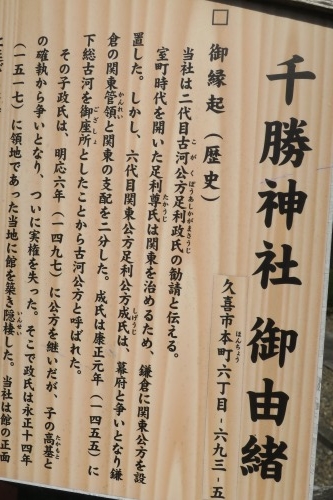 千勝神社 御由緒
久喜市本町六丁目-六九三-五
ほんちょう
□ 御縁起(歴史)
当社は二代目古河公方足利政氏の勧請と伝える。
こがくぼうあしかがまさうじ
室町時代を開いた足利尊氏は関東を治めるため、鎌倉に関東公方を設
たかうじ
置した。しかし、六代目関東公方足利公方成氏は、幕府と争いとなり鎌
しげうじ
倉の関東管領と関東の支配を二分した。成氏は康正元年(一四五五)に
かんれい
下総古河を御座所としたことから古河公方と呼ばれた。
ござしょ
その子政氏は、明応六年(一四九七)に公方を継いだが、子の高基と
たかもと
の確執から争いとなり、ついに実権を失った。そこで政氏は永正十四年
(一五一七)に領地であった当地に館を築き隠棲した。当社は館の正面
いんせい